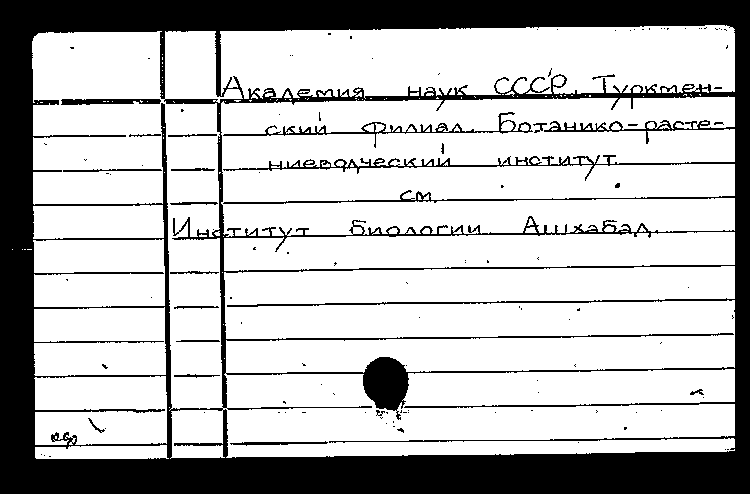 Академия наук СССР. Туркмен-
ский филиал. Ботанико-расте-
ниеводческий институт.
см.
Институт биологии. Ашхабад.